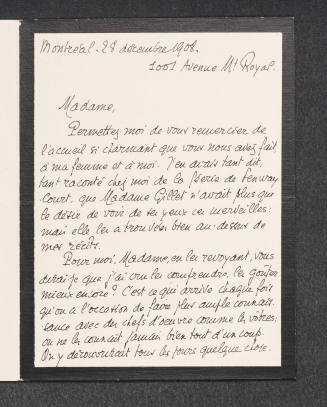 Montréal. 28 décembre 1908.
1001 Avenue Mt Royal.
Madame,
Permettez moi de vous remercier de
l'accueil si charmant que vous nous avez fait,
à ma femme et à moi. J'en avais tant dit,
tant raconté chez moi de la féerie de Fenway
Court, que Madame Gillet n'avait plus que
le désir de voir de ses yeux ces merveilles:
mais elle les a trouvées bien au-dessus de
mes récits.
Pour moi, Madame, en les revoyant, vous
dirai-je que j'ai cru les comprendre, les goûter
mieux encore? C'est ce qui arrive chaque fois
qu'on a l'occasion de faire plus ample connais-
sance avec des chefs d'oeuvre comme les vôtres:
on ne les connaît jamais bien tout d'un coup.
On y découvrirait tous les jours quelque chose.